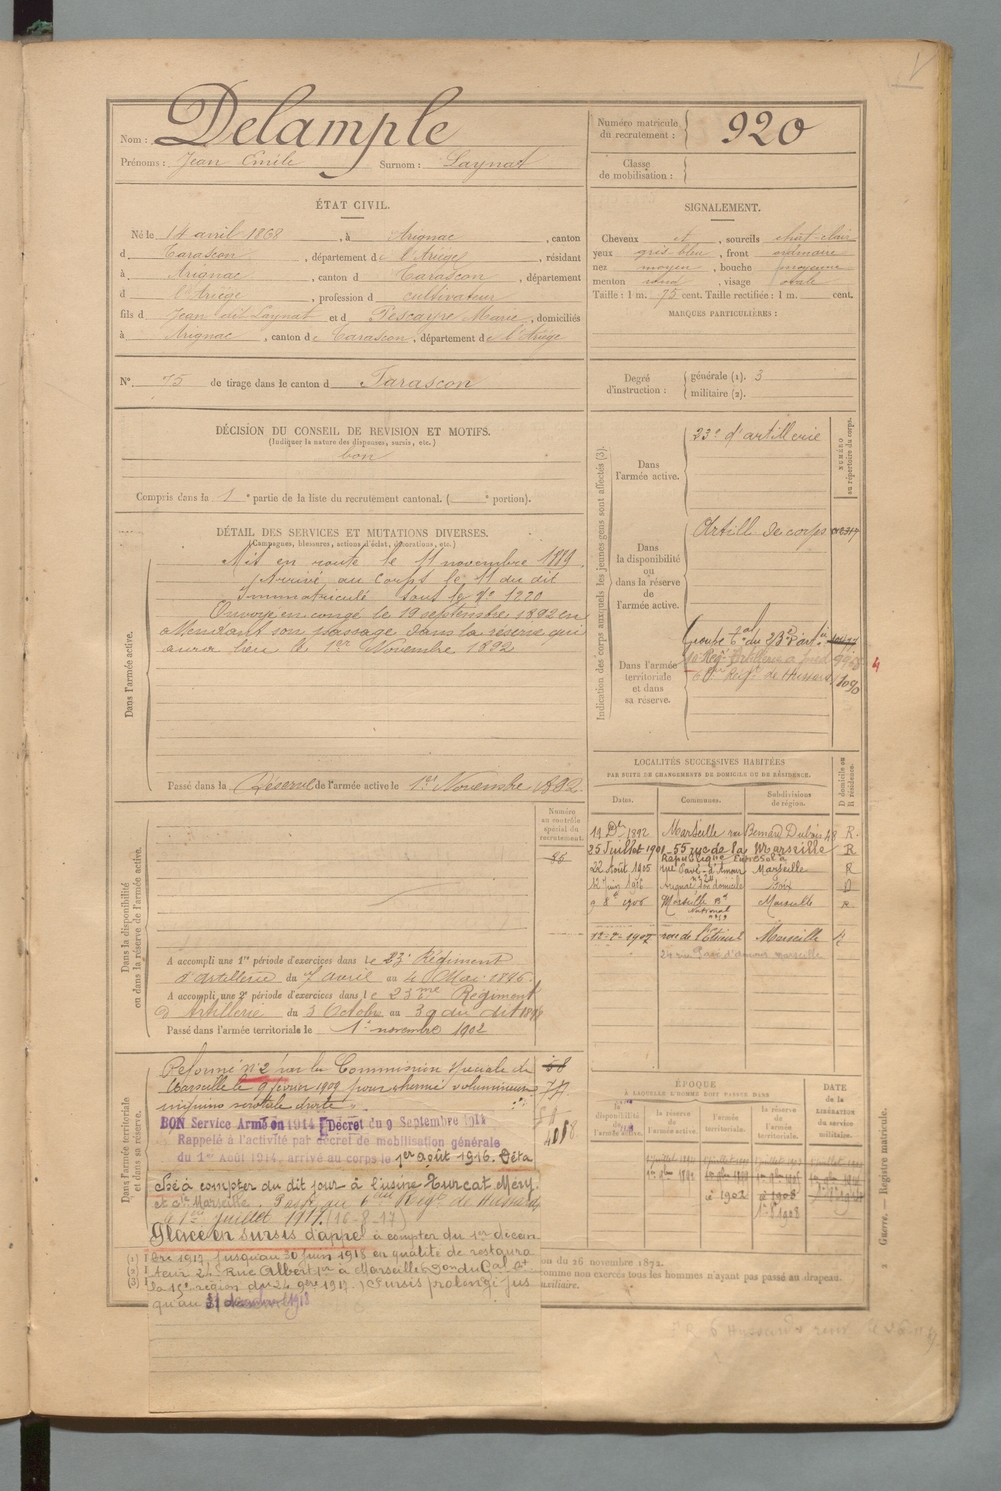 Nom : Delample
Prénoms : Jean Emile Surnom : Laynat
Numéro matricule du recrutement : 920
Classe de mobilisation :
ÉTAT CIVIL.
Né le 14 avril 1868, à Arignac, canton
d Tarascon, département de l'Ariège, résidant
à Arignac, canton d Tarascon, département
d l'Ariège, profession d cultivateur
fils d Jean Laynat et d Pescayre Marie, domiciliés
à Arignac, canton de Tarascon, département de l'Ariège
N° 75 de tirage dans le canton d Tarascon
SIGNALEMENT.
Cheveux et, sourcils chât-clair
yeux gris-bleu, front ordinaire
nez moyen, bouche moyenne
menton rond, visage ovale
Taille : 1 m. 75 cent. Taille rectifiée : 1 m. cent.
MARQUES PARTICULIÈRES :
Degré d'instruction : générale (1). 3
militaire (2).
DÉCISION DU CONSEIL DE REVISION ET MOTIFS.
(Indiquer la nature des dispenses, sursis, etc.)
bon
Compris dans la 1e partie de la liste du recrutement cantonal. ( e portion).
DÉTAIL DES SERVICES ET MUTATIONS DIVERSES.
(Campagnes, blessures, actions d'éclat, décorations, etc.)
Dans l'armée active.
Mis en route le 11 novembre 1889.
Arrivé au corps le 11 du dit
Immatriculé sous le N° 1220
Envoyé en congé le 19 septembre 1892 en
attendant son passage dans la réserve qui
aura lieu le 1er Novembre 1892
Passé dans la Réserve de l'armée active le 1er Novembre 1892.
Indication des corps auxquels les jeunes gens sont affectés (3).
NUMÉRO au répertoire du corps.
Dans l'armée active.
23e d'artillerie
Dans la disponibilité ou dans la réserve de l'armée active.
Artille de corps
Dans l'armée territoriale et dans sa réserve.
Groupe t al du 23e d'art ie
10e Reg t Artillerie à pied
6e Reg t de Hussards 1090
4
LOCALITÉS SUCCESSIVES HABITÉES
PAR SUITE DE CHANGEMENTS DE DOMICILE OU DE RÉSIDENCE.
Dates. Communes. Subdivisions de région. D domicile ou R résidence.
19 Dbre 1892 Marseille rue Bernard Dubois 48 R.
25 Juillet 1901 55 rue de la République Marseille R
22 Août 1905 rue Pavé-d'Amour n° 24 Marseille R
12 Juin 1906 Arignac son domicile Foix D
8 1906 Marseille Bd National Marseille R
12-2-1907 rue de l'Etrieu Marseille R
24 rue Pavé d'amour marseille
Dans la disponibilité ou dans la réserve de l'armée active.
Numéro au contrôle spécial du recrutement.
A accompli une 1re période d'exercices dans le 23e Régiment
d'artillerie du 7 avril au 4 Mai 1896.
A accompli une 2e période d'exercices dans le 23me Régiment
d'Artillerie du 3 Octobre au 30 du dit
Passé dans l'armée territoriale le 1er novembre 1902
Dans l'armée territoriale et dans sa réserve.
Réformé n° 2 par la Commission spéciale de
Marseille le 9 février 1909 pour hernie volumineuse
inguino scrotale droite.
BON Service Armé en 1914 [Décret du 9 Septembre 1914
Rappelé à l'activité par décret de mobilisation générale
du 1er Août 1914, arrivé au corps le 1er août 1916. Déta
ché à compter du dit jour à l'usine Turcat Méry.
et Cie Marseille. Passé au 6me Régt de Hussards
le 1er Juillet 1917. (16-8-17)
Placé en sursis d'appel à compter du 1er décem
bre 1917 jusqu'au 30 juin 1918 en qualité de restaura
teur 24 Rue Albert 1er à Marseille
la 15e région du 24 9bre 1917.) Sursis prolongé jus
qu'au 31 décembre 1918
ÉPOQUE
À LAQUELLE L'HOMME DOIT PASSER DANS
la disponibilité de l'armée active. la réserve de l'armée active. l'armée territoriale. la réserve de l'armée territoriale.
DATE de la LIBÉRATION du service militaire.
1902 1908
on du 26 novembre 1872.
comme non exercés tous les hommes n'ayant pas passé au drapeau.
auxiliaire.
Guerre. — Registre matricule.